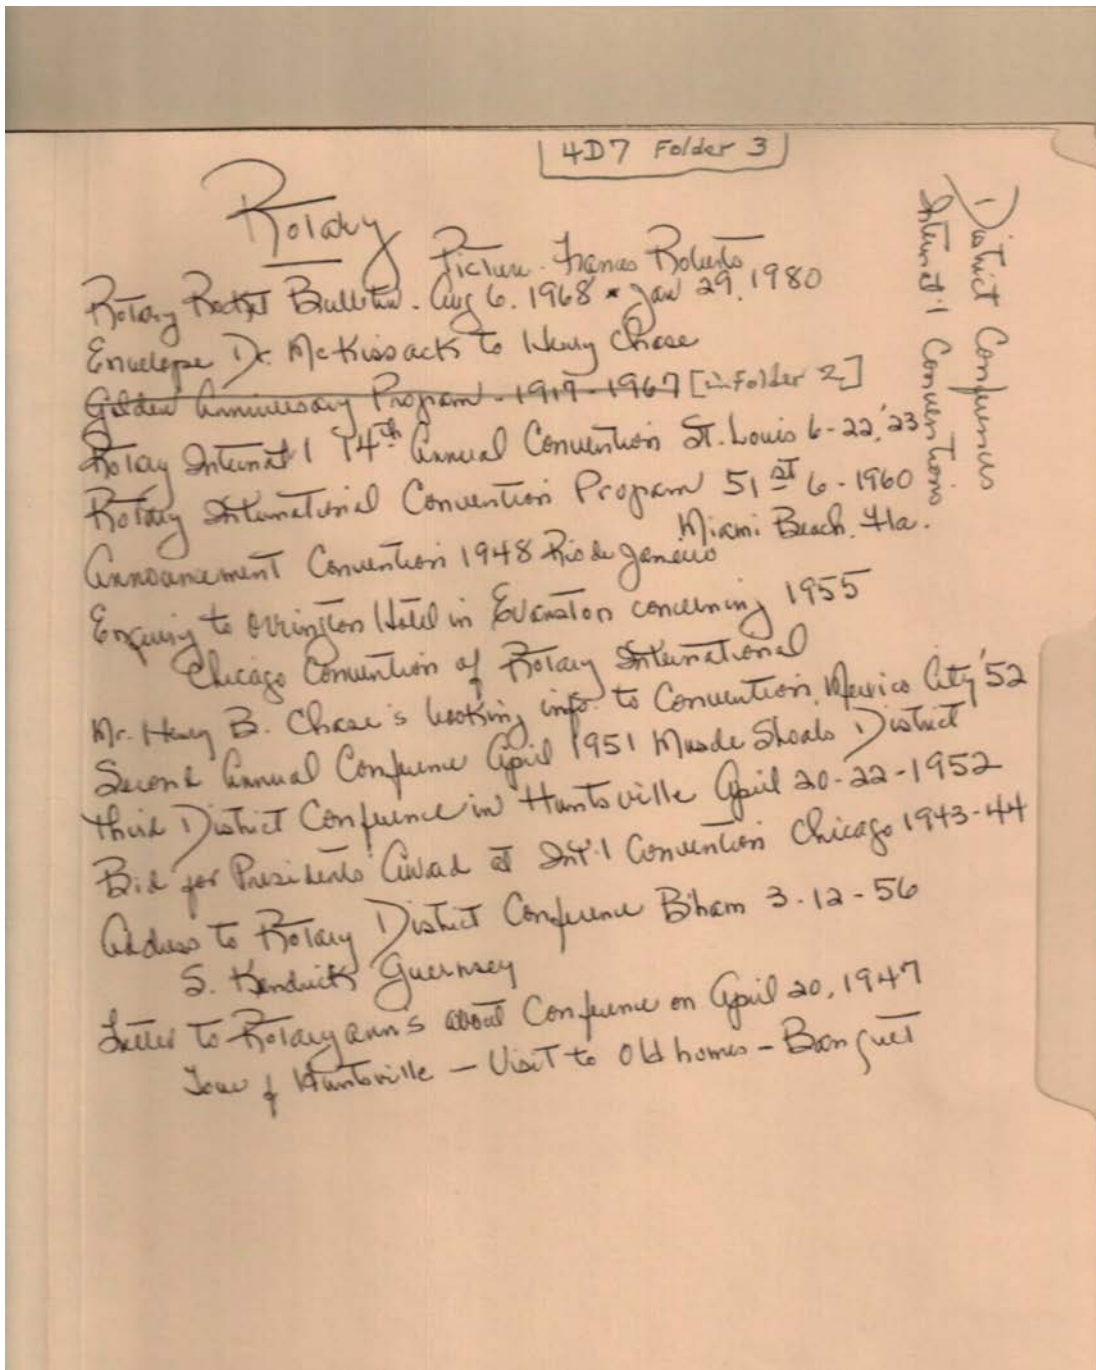 4D7 Folder 3
Rotary
Picture - Frances Roberts
Rotary Rocket Bulletin - Aug 6, 1968 * Jan 29, 1980
Envelope Dr. McKissack to Henry Chase
Golden Anniversary Program - 1917-1967 [in Folder 2]
Rotary Internat'l 14th Annual Convention St. Louis 6-22,'23
Rotary International Convention Program 51st 6-1960
Miami Beach, Fla.
Announcement Convention 1948 Rio de Janeiro
Enquiry to Orrington Hotel in Evanston concerning 1955
Chicago Convention of Rotary International
Mr. Henry B. Chase's booking info. to Convention, Mexico City '52
Second Annual Conference April 1951 Muscle Shoals District
Third District Conference in Huntsville April 20-22-1952
Bid for Presidents Award at Int'l Convention Chicago 1943-44
Address to Rotary District Conference B'ham 3-12-56
S. Kendrick Guernsey
Letter to Rotaryann's about Conference on April 20, 1947
Tour of Huntsville - Visit to Old homes - Banquet
District Conferences
Internat'l Conventions